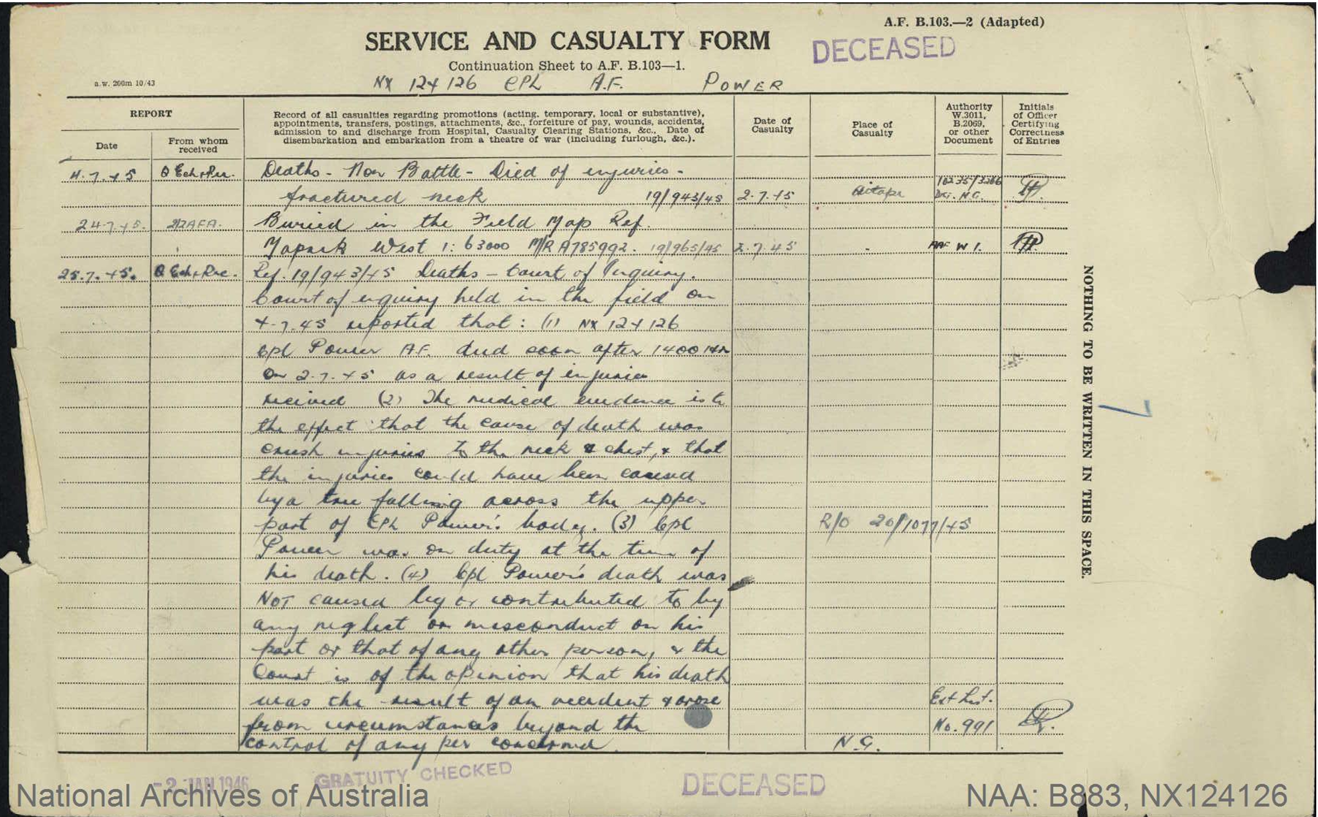 A.F. B.103.—2 (Adapted)
SERVICE AND CASUALTY FORM
DECEASED
Continuation Sheet to A.F. B.103—1.
a.w. 200m 10/43
NX 124126 CPL A.F. POWER
REPORT
Date
From whom received
Record of all casualties regarding promotions (acting, temporary, local or substantive),
appointments, transfers, postings, attachments, &c., forfeiture of pay, wounds, accidents,
admission to and discharge from Hospital, Casualty Clearing Stations, &c., Date of
disembarkation and embarkation from a theatre of war (including furlough, &c.).
Date of Casualty
Place of Casualty
Authority W.3011, B.2069, or other Document
Initials of Officer Certifying Correctness of Entries
4.7.45 Deaths - Non Battle - Died of injuries -
fractured neck 19/943/45 2.7.45 Aitape
24.7.45. Buried in the Field Map Ref.
West 1: 63000 M/R A785992. 19/965/45 2.7.45
25.7.45. Ref. 19/943/45 Deaths - Court of Inquiry.
Court of enquiry held in the field on
4.7.45 reported that: (1) NX 124126
Cpl Power A.F. died soon after 1400 Hr
on 2.7.45 as a result of injuries
received (2) The medical evidence is to
the effect that the cause of death was
crush injuries to the neck & chest, & that
the injuries could have been caused
by a tree falling across the upper
part of CPL Power's body. (3) Cpl R/O 20/1077/45
Power was on duty at the time of
his death. (4) Cpl Power's death was
NOT caused by or contributed to by
any neglect or misconduct on his
part or that of any other person, & the
Court is of the opinion that his death
was the result of an accident & arose
from circumstances beyond the No. 991
control of any per concerned. N.G.
NOTHING TO BE WRITTEN IN THIS SPACE.
-2 JAN 1946
GRATUITY CHECKED
DECEASED
National Archives of Australia
NAA: B883, NX124126